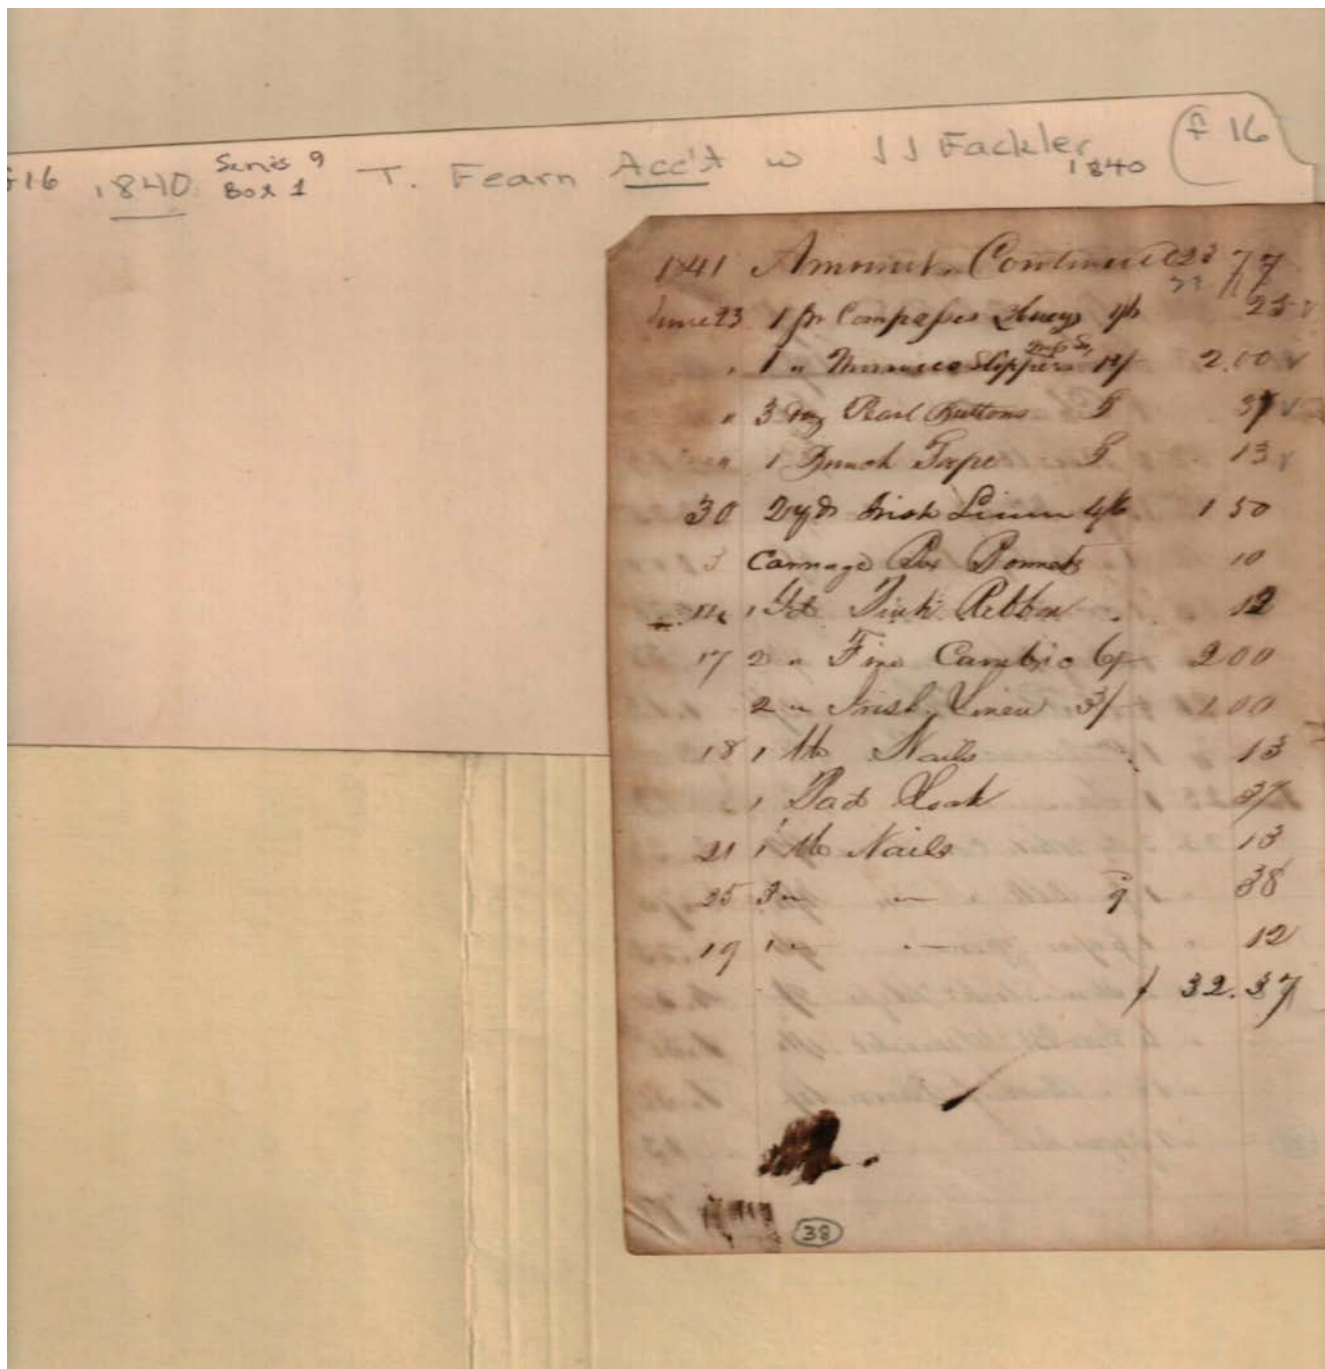 f16 1840 Series 9 Box 1 T. Fearn Acc't w J J Fackler 1840 f 16
1841 Amount Continued 23 77
June 23 1 pr Compasses 1/6 25
" 1 " Morocco Slippers 12/ 2.00
" 3 doz Pearl Buttons 37
" 1 Bunch Tape 13
30 2 yds Irish Linen 4/6 1 50
3 Carriage Box Bonnets 10
14 1 Yd Pink Ribbon 12
17 2 " Fine Cambric 6/ 2 00
2 " Irish Linen 3/ 1.00
18 1 lb Nails 13
1 Pad Lock 37
21 1 lb Nails 13
25 3 " " 9 38
19 1 " " 12
32.37
38